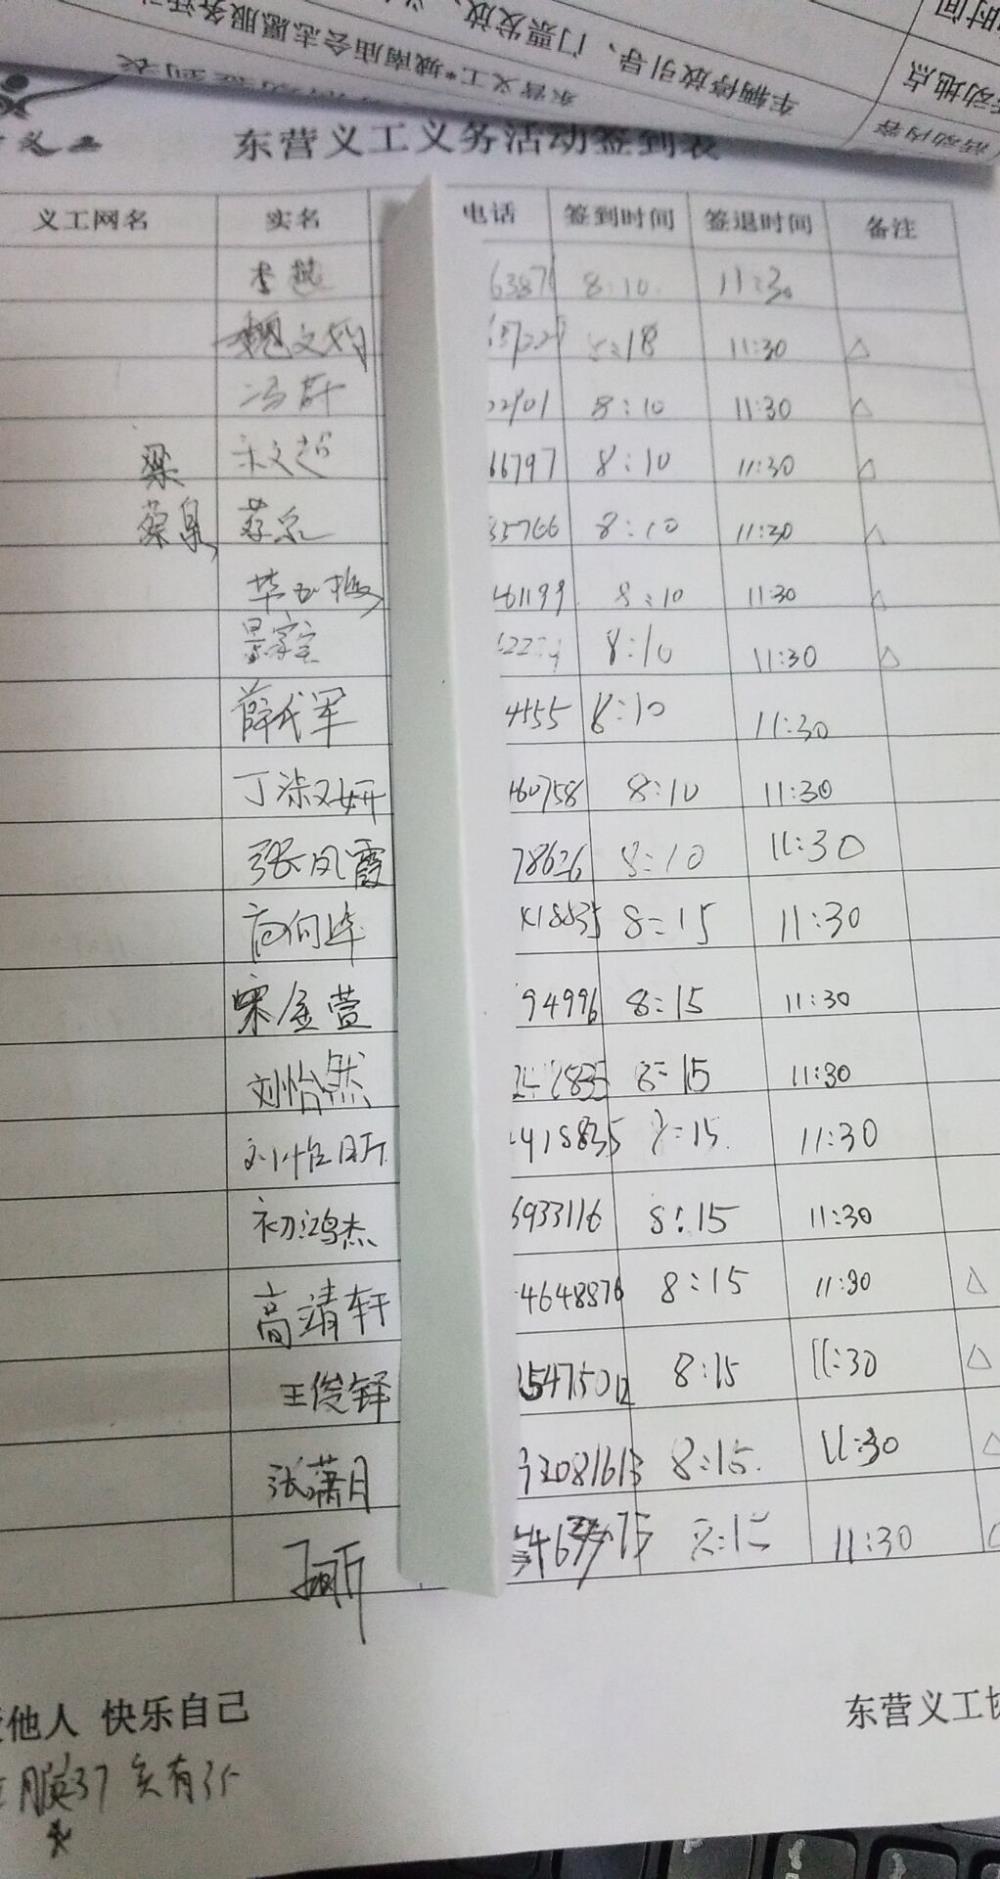 东营义工*城南庙会志愿服务活
车辆停放引导、门票发放、
活动内容
活动地点
时间
东营义工义务活动签到表
义工网名 实名 电话 签到时间 签退时间 备注
李 6387 8:10 11:30
魏文 :18 11:30 △
冯 22901 8:10 11:30 △
梁 宋文超 66797 8:10 11:30 △
蔡泉 蔡泉 35766 8:10 11:30 △
61199 8:10 11:30 △
景家宝 8:10 11:30 △
薛代军 4455 8:10 11:30
丁淑妍 60758 8:10 11:30
张凤霞 78626 8:10 11:30
高向峰 418835 8:15 11:30
宋金萱 94996 8:15 11:30
刘怡然 8:15 11:30
刘怡昕 418835 8:15 11:30
初鸿杰 5933116 8:15 11:30
高靖轩 4648876 8:15 11:30 △
王俊铎 54715012 8:15 11:30 △
张潇月 92081613 8:15 11:30 △
8:15 11:30 △
他人 快乐自己
东营义工协
服37 实有35